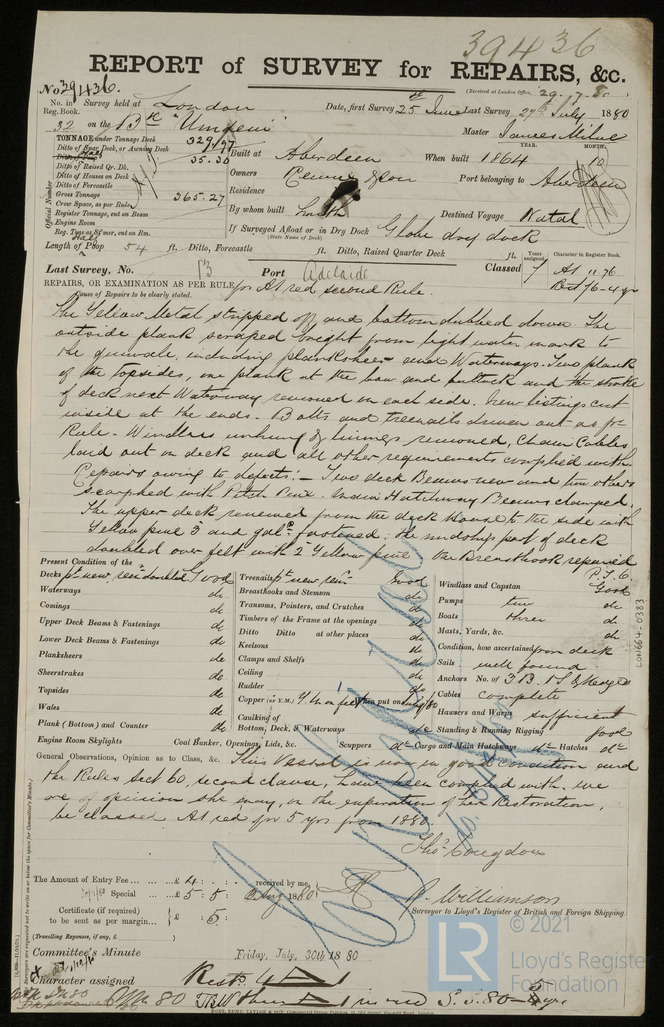 39436
REPORT of SURVEY for REPAIRS, &c.
(Received at London Office, 29.7.80
No. 39436.
No. in Reg. Book. Survey held at London Date, first Survey 25th June Last Survey 27th July 1880
32 on the Bk "Umgeni" Master James Milne
TONNAGE under Tonnage Deck 329.97
Ditto of Spar Deck, or Awning Deck
35.30
Built at Aberdeen When built 1864 YEAR. MONTH. 10
Ditto of Raised Qr. Dk.
Ditto of Houses on Deck
Ditto of Forecastle
Owners Rennie & Son Port belonging to Aberdeen
Gross Tonnage 365.27
Residence
Crew Space, as per Rule
Register Tonnage, cut on Beam
Engine Room
Reg. Tons as St'mer, cut on Bm.
Official Number
By whom built Destined Voyage Natal
If Surveyed Afloat or in Dry Dock Globe dry dock
(State Name of Dock)
Length of Half Poop 54 ft. Ditto, Forecastle ft. Ditto, Raised Quarter Deck ft.
Years assigned Character in Register Book.
Last Survey, No. 13 Port Adelaide Classed 7 A1 11.76
REPAIRS, OR EXAMINATION AS PER RULE for A1 red second Rule.
Cause of Repairs to be clearly stated.
The Yellow Metal stripped off and bottom dubbed down. The
outside plank scraped bright from light water mark to
the gunwale, including plansheer and Waterways. Two plank
of the topsides, one plank at the bow and buttock and the strake
of deck next Waterway renewed on each side. New listings cut
inside at the ends. Bolts and treenails driven out as pr
Rule. Windlass unhung & linings removed, Chain Cables
laid out on deck and all other requirements complied with
Repairs owing to defects:- Two deck Beams new and two others
scarphed with Pitch Pine. Main Hatchway Beams clamped.
The upper deck renewed from the deck House to the side with
Yellow pine 3 and galv. fastened; the midship part of deck
doubled over felt with 2 Yellow pine the Breasthook repaired
P.T.O.
Present Condition of the
Decks pt new rem doubled Good Treenails pt new rem Good Windlass and Capstan Good
Waterways do Breasthooks and Stemson do Pumps two do
Comings do Transoms, Pointers, and Crutches do Boats three do
Upper Deck Beams & Fastenings do Timbers of the Frame at the openings do Masts, Yards, &c. do
Lower Deck Beams & Fastenings do Ditto Ditto at other places do Condition, how ascertained from deck
Planksheers do Keelsons do Sails well found
Sheerstrakes do Clamps and Shelfs do Anchors No. of 3 B. 1 S. & Kedges
Topsides do Ceiling do Cables complete
Wales do Rudder do Hawsers and Warps sufficient
Plank (Bottom) and Counter do Copper (or Y.M.) Y.M. on felt When put on July/80
Caulking of Bottom, Deck, & Waterways do Standing & Running Rigging good
Engine Room Skylights Coal Bunker, Openings, Lids, &c. Scuppers do Cargo and Main Hatchways do Hatches do
General Observations, Opinion as to Class, &c. This Vessel is now in good condition and
the Rules Sect 60, second clause, have been complied with. We
are of opinion she may, on the expiration of her Restoration,
be classed A1 red for 5 yrs from 1880.
Thos. Congdon
The Amount of Entry Fee ... £ 4 : : received by me,
Special ... £ 5 : 5 : Aug 1880
Certificate (if required) to be sent as per margin... £ : 5 :
(Travelling Expenses, if any, £ )
Williamson
Surveyor to Lloyd's Register of British and Foreign Shipping.
Committee's Minute Friday, July, 30th 1880
Character assigned
LON664-0383
© 2021
LR
Lloyd's Register
Foundation